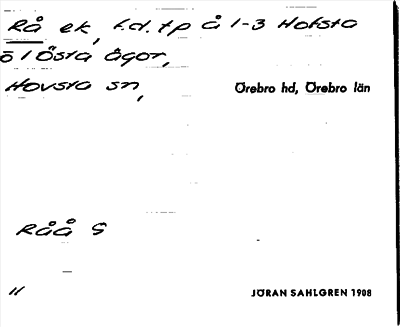 Rå ek, f.d. tp å 1-3 Hofsta
ö / Östa ägor,
Hovsta sn, Örebro hd, Örebro län
Råå S
11 JÖRAN SAHLGREN 1908